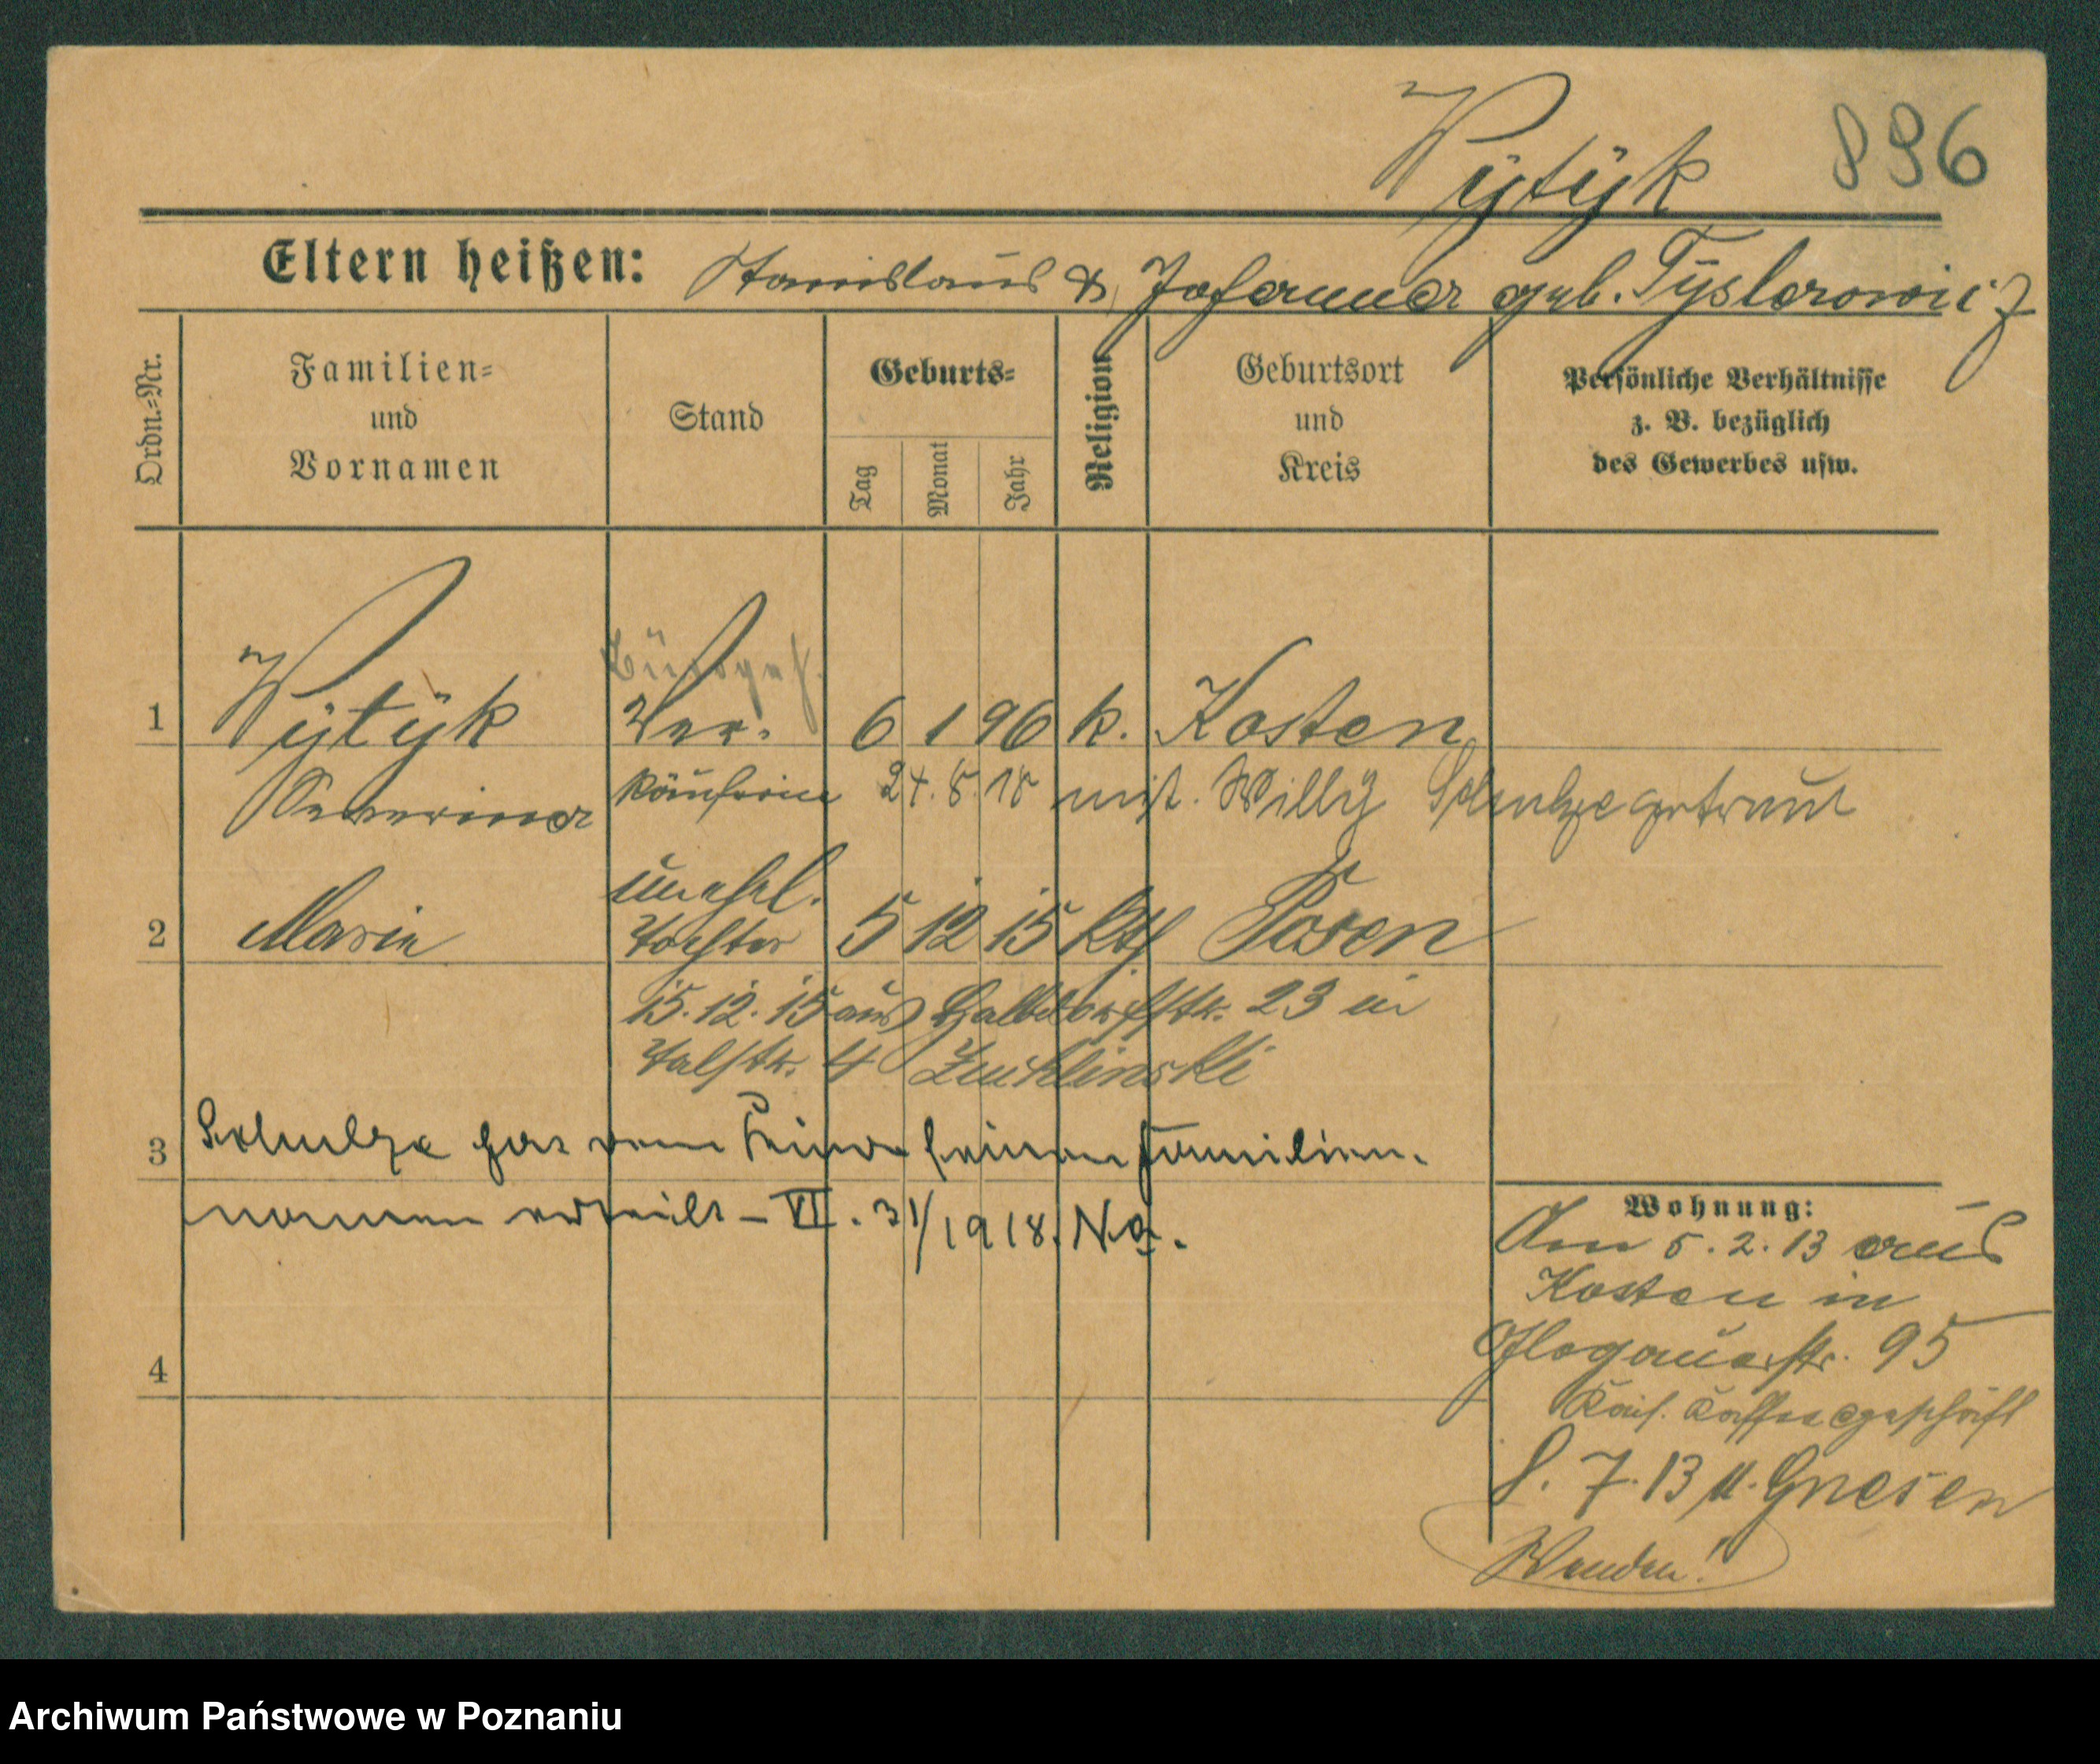 Wÿtÿk 896
Eltern heißen: Stanislaus & Johanna geb. Tÿslerowicz
Ordn.=Nr.
Familien=
und
Vornamen
Stand
Geburts=
Tag
Monat
Jahr
Religion
Geburtsort
und
Kreis
Persönliche Verhältnisse
z. B. bezüglich
des Gewerbes usw.
Bürogeh.
1 Wÿtÿk Ver= 6 1 96 k. Kosten
Severina käuferin 24. 8. 18 mit Willy Schulze getraut
unehl.
2 Maria Tochter 5 12 15 kth Posen
15. 12. 15 aus Halbdorfstr. 23 in
Talstr. 4
3 Schulze hat dem Kinde seinen Familien=
namen erteilt – VI. 31/1918. N.a.
4
Wohnung:
Am 5. 2. 13 aus
Kosten in
Glogauerstr. 95
Kais. Kaffeegeschäft
8. 7. 13 n. Gnesen
Wenden!
Archiwum Państwowe w Poznaniu